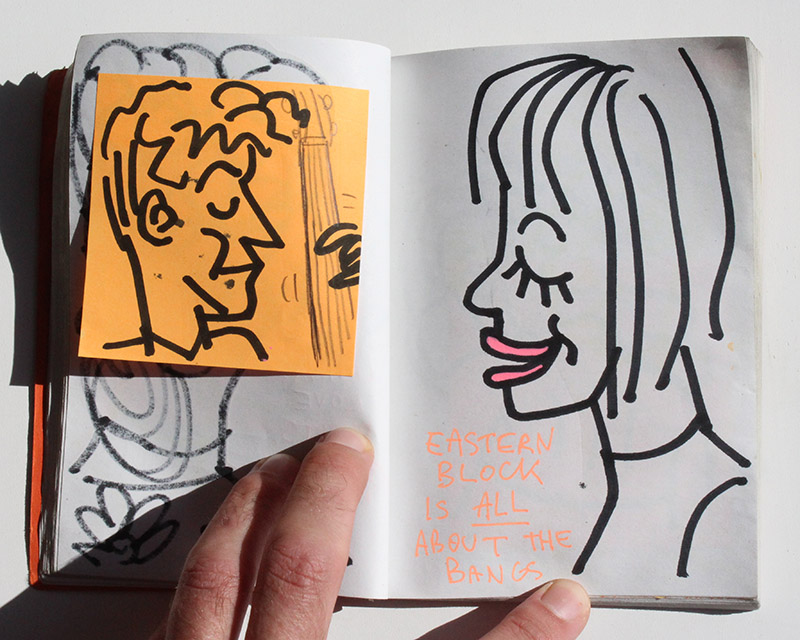 EASTERN
BLOCK
IS ALL
ABOUT THE
BANGS